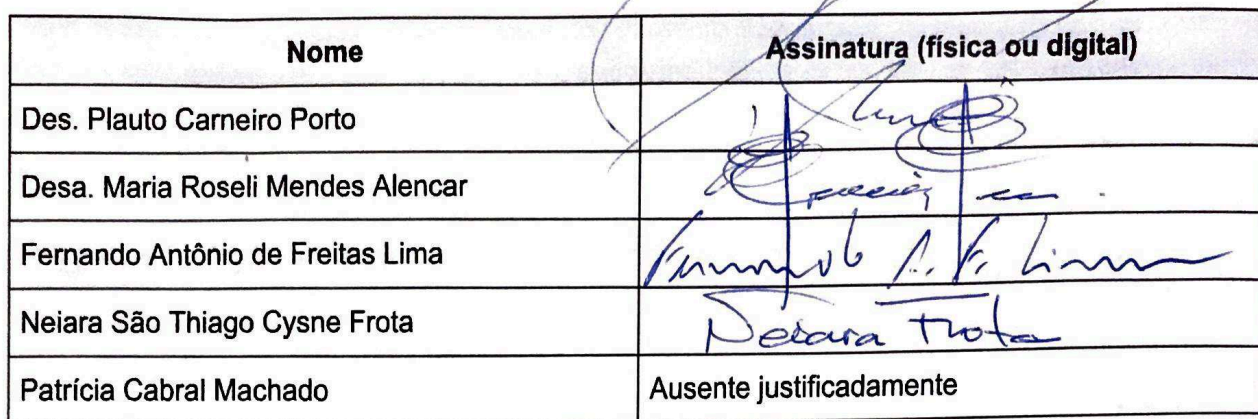 Nome Assinatura (física ou digital)
Des. Plauto Carneiro Porto
Desa. Maria Roseli Mendes Alencar
Fernando Antônio de Freitas Lima Fernando A. F. Lima
Neiara São Thiago Cysne Frota Neiara Frota
Patrícia Cabral Machado Ausente justificadamente